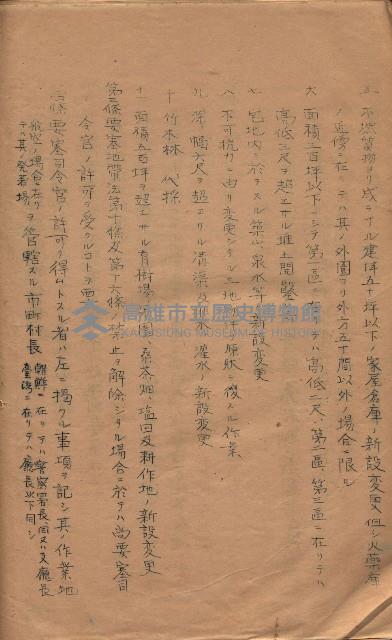 五、不燃質物ヨリ成ニサル建坪五十坪以下ノ家屋倉庫ノ新設変更 但シ火薬庫
ノ近傍ニ在リテハ其ノ外囲ヨリ外方五十間以外ノ場合ニ限ル
六 面積二百坪以下ニシテ第一区ニ在リテハ高低二尺、第二区、第三区ニ在リテハ
高低三尺ヲ超エサル堆土開鑿
七 宅地内ニ於テスル築山、泉水等ノ新設変更
八 不可抗力ニ由リ変更シタル土地ノ原状ニ復スル作業
九 深幅六尺ヲ超エサル溝渠及排水灌水ノ新設変更
十 竹木林ノ伐採
十一 面積五百坪ヲ超エサル育樹場、公園、桑茶畑、塩田及耕作地ノ新設変更
第三條要塞地帯法第十條及第十六條ノ禁止ヲ解除シタル場合ニ於テハ尚要塞司
令官ノ許可ヲ受クルコトヲ要
條 要塞司令官ノ許可ヲ得ムトスル者ハ左ニ掲クル事項ヲ記シ其ノ作業地
ノ場合ニ在リテハ其ノ発着場 ヲ管轄スル市町村長 朝鮮ニ在リテハ警察署長、同 又ハ支廳長 臺湾ニ在リテハ廳長 以下同シ
高雄市立歷史博物館
KAOHSIUNG MUSEUM OF HISTORY